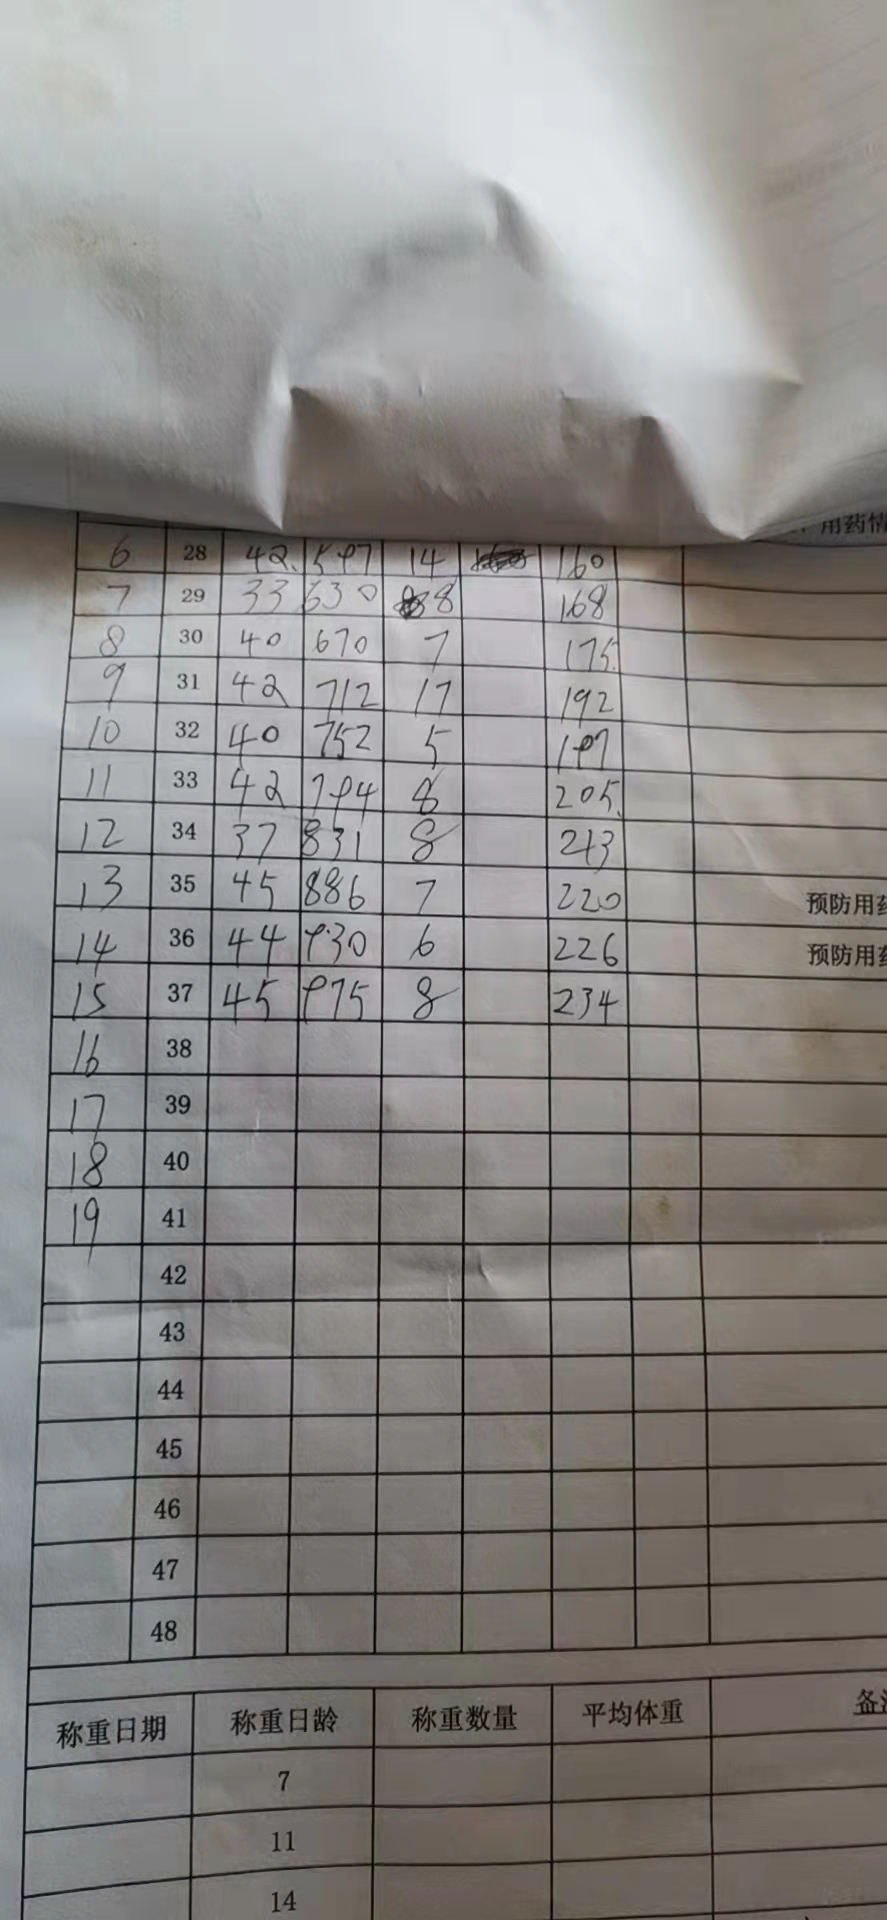 用药情
6 28 42. 597 14 160
7 29 33 630 8 168
8 30 40 670 7 175.
9 31 42 712 17 192
10 32 40 752 5 197
11 33 42 794 8 205.
12 34 37 831 8 213
13 35 45 886 7 220 预防用药
14 36 44 930 6 226 预防用药
15 37 45 975 8 234
16 38
17 39
18 40
19 41
42
43
44
45
46
47
48
称重日期 称重日龄 称重数量 平均体重 备注
7
11
14